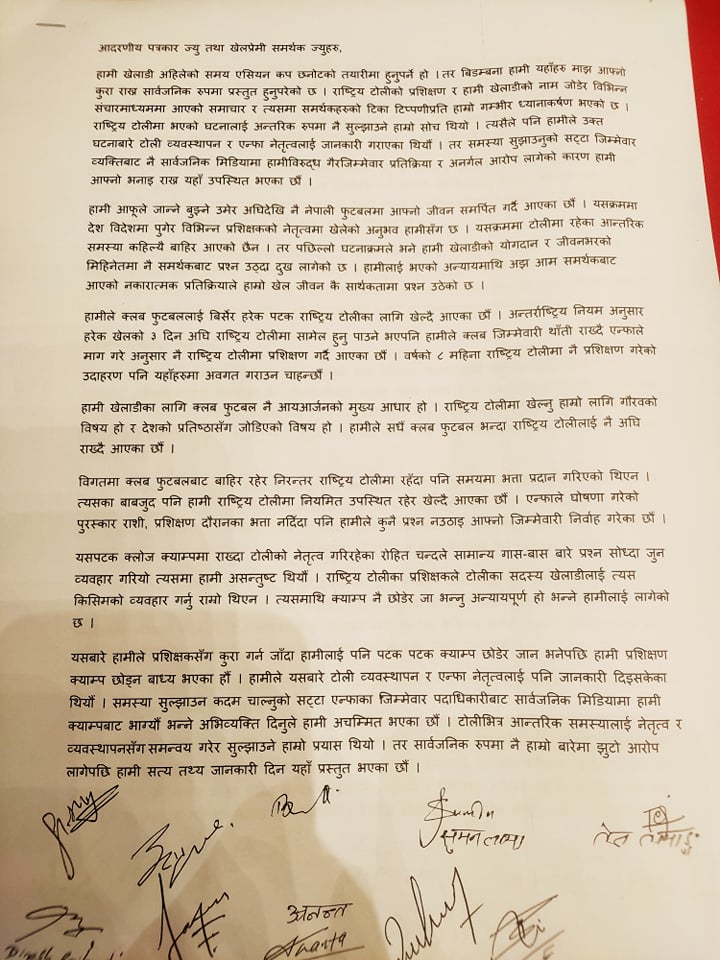 आदरणीय पत्रकार ज्यु तथा खेलप्रेमी समर्थक ज्युहरु,
हामी खेलाडी अहिलेको समय एसियन कप छनोटको तयारीमा हुनुपर्ने हो । तर बिडम्बना हामी यहाँहरु माझ आफ्नो
कुरा राख्न सार्वजनिक रुपमा प्रस्तुत हुनुपरेको छ । राष्ट्रिय टोलीको प्रशिक्षण र हामी खेलाडीको नाम जोडेर विभिन्न
संचारमाध्यममा आएको समाचार र त्यसमा समर्थकहरुको टिका टिप्पणीप्रति हाम्रो गम्भीर ध्यानाकर्षण भएको छ ।
राष्ट्रिय टोलीमा भएको घटनालाई अन्तरिक रुपमा नै सुल्झाउने हाम्रो सोच थियो । त्यसैले पनि हामीले उक्त
घटनाबारे टोली व्यवस्थापन र एन्फा नेतृत्वलाई जानकारी गराएका थियौं । तर समस्या सुझाउनुको सट्टा जिम्मेवार
व्यक्तिबाट नै सार्वजनिक मिडियामा हामीविरुद्ध गैरजिम्मेवार प्रतिक्रिया र अनर्गल आरोप लागेको कारण हामी
आफ्नो भनाइ राख्न यहाँ उपस्थित भएका छौं ।
हामी आफूले जान्ने बुझ्ने उमेर अघिदेखि नै नेपाली फुटबलमा आफ्नो जीवन समर्पित गर्दै आएका छौं । यसक्रममा
देश विदेशमा पुगेर विभिन्न प्रशिक्षकको नेतृत्वमा खेलेको अनुभव हामीसँग छ । यसक्रममा टोलीमा रहेका आन्तरिक
समस्या कहिल्यै बाहिर आएको छैन । तर पछिल्लो घटनाक्रमले भने हामी खेलाडीको योगदान र जीवनभरको
मिहिनेतमा नै समर्थकबाट प्रश्न उठ्दा दुख लागेको छ । हामीलाई भएको अन्यायमाथि अझ आम समर्थकबाट
आएको नकारात्मक प्रतिक्रियाले हाम्रो खेल जीवन कै सार्थकतामा प्रश्न उठेको छ ।
हामीले क्लब फुटबललाई बिर्सेर हरेक पटक राष्ट्रिय टोलीका लागि खेल्दै आएका छौं । अन्तर्राष्ट्रिय नियम अनुसार
हरेक खेलको ३ दिन अघि राष्ट्रिय टोलीमा सामेल हुनु पाउने भएपनि हामीले क्लब जिम्मेवारी थाँती राख्दै एन्फाले
माग गरे अनुसार नै राष्ट्रिय टोलीमा प्रशिक्षण गर्दै आएका छौं । वर्षको ८ महिना राष्ट्रिय टोलीमा नै प्रशिक्षण गरेको
उदाहरण पनि यहाँहरुमा अवगत गराउन चाहन्छौं ।
हामी खेलाडीका लागि क्लब फुटबल नै आयआर्जनको मुख्य आधार हो । राष्ट्रिय टोलीमा खेल्नु हाम्रो लागि गौरवको
विषय हो र देशको प्रतिष्ठासँग जोडिएको विषय हो । हामीले सधैं क्लब फुटबल भन्दा राष्ट्रिय टोलीलाई नै अघि
राख्दै आएका छौं ।
विगतमा क्लब फुटबलबाट बाहिर रहेर निरन्तर राष्ट्रिय टोलीमा रहँदा पनि समयमा भत्ता प्रदान गरिएको थिएन ।
त्यसका बाबजुद पनि हामी राष्ट्रिय टोलीमा नियमित उपस्थित रहेर खेल्दै आएका छौं । एन्फाले घोषणा गरेको
पुरस्कार राशी, प्रशिक्षण दौरानका भत्ता नदिँदा पनि हामीले कुनै प्रश्न नउठाइ आफ्नो जिम्मेवारी निर्वाह गरेका छौं ।
यसपटक क्लोज क्याम्पमा राख्दा टोलीको नेतृत्व गरिरहेका रोहित चन्दले सामान्य गास-बास बारे प्रश्न सोध्दा जुन
व्यवहार गरियो त्यसमा हामी असन्तुष्ट थियौं । राष्ट्रिय टोलीका प्रशिक्षकले टोलीका सदस्य खेलाडीलाई त्यस
किसिमको व्यवहार गर्नु राम्रो थिएन । त्यसमाथि क्याम्प नै छोडेर जा भन्नु अन्यायपूर्ण हो भन्ने हामीलाई लागेको
छ ।
यसबारे हामीले प्रशिक्षकसँग कुरा गर्न जाँदा हामीलाई पनि पटक पटक क्याम्प छोडेर जान भनेपछि हामी प्रशिक्षण
क्याम्प छोड्न बाध्य भएका हौं । हामीले यसबारे टोली व्यवस्थापन र एन्फा नेतृत्वलाई पनि जानकारी दिइसकेका
थियौं । समस्या सुल्झाउन कदम चाल्नुको सट्टा एन्फाका जिम्मेवार पदाधिकारीबाट सार्वजनिक मिडियामा हामी
क्याम्पबाट भाग्यौं भन्ने अभिव्यक्ति दिनुले हामी अचम्मित भएका छौं । टोलीभित्र आन्तरिक समस्यालाई नेतृत्व र
व्यवस्थापनसँग समन्वय गरेर सुल्झाउने हाम्रो प्रयास थियो । तर सार्वजनिक रुपमा नै हाम्रो बारेमा झुटो आरोप
लागेपछि हामी सत्य तथ्य जानकारी दिन यहाँ प्रस्तुत भएका छौं ।
सुमन लामा
अनन्त
Ananta